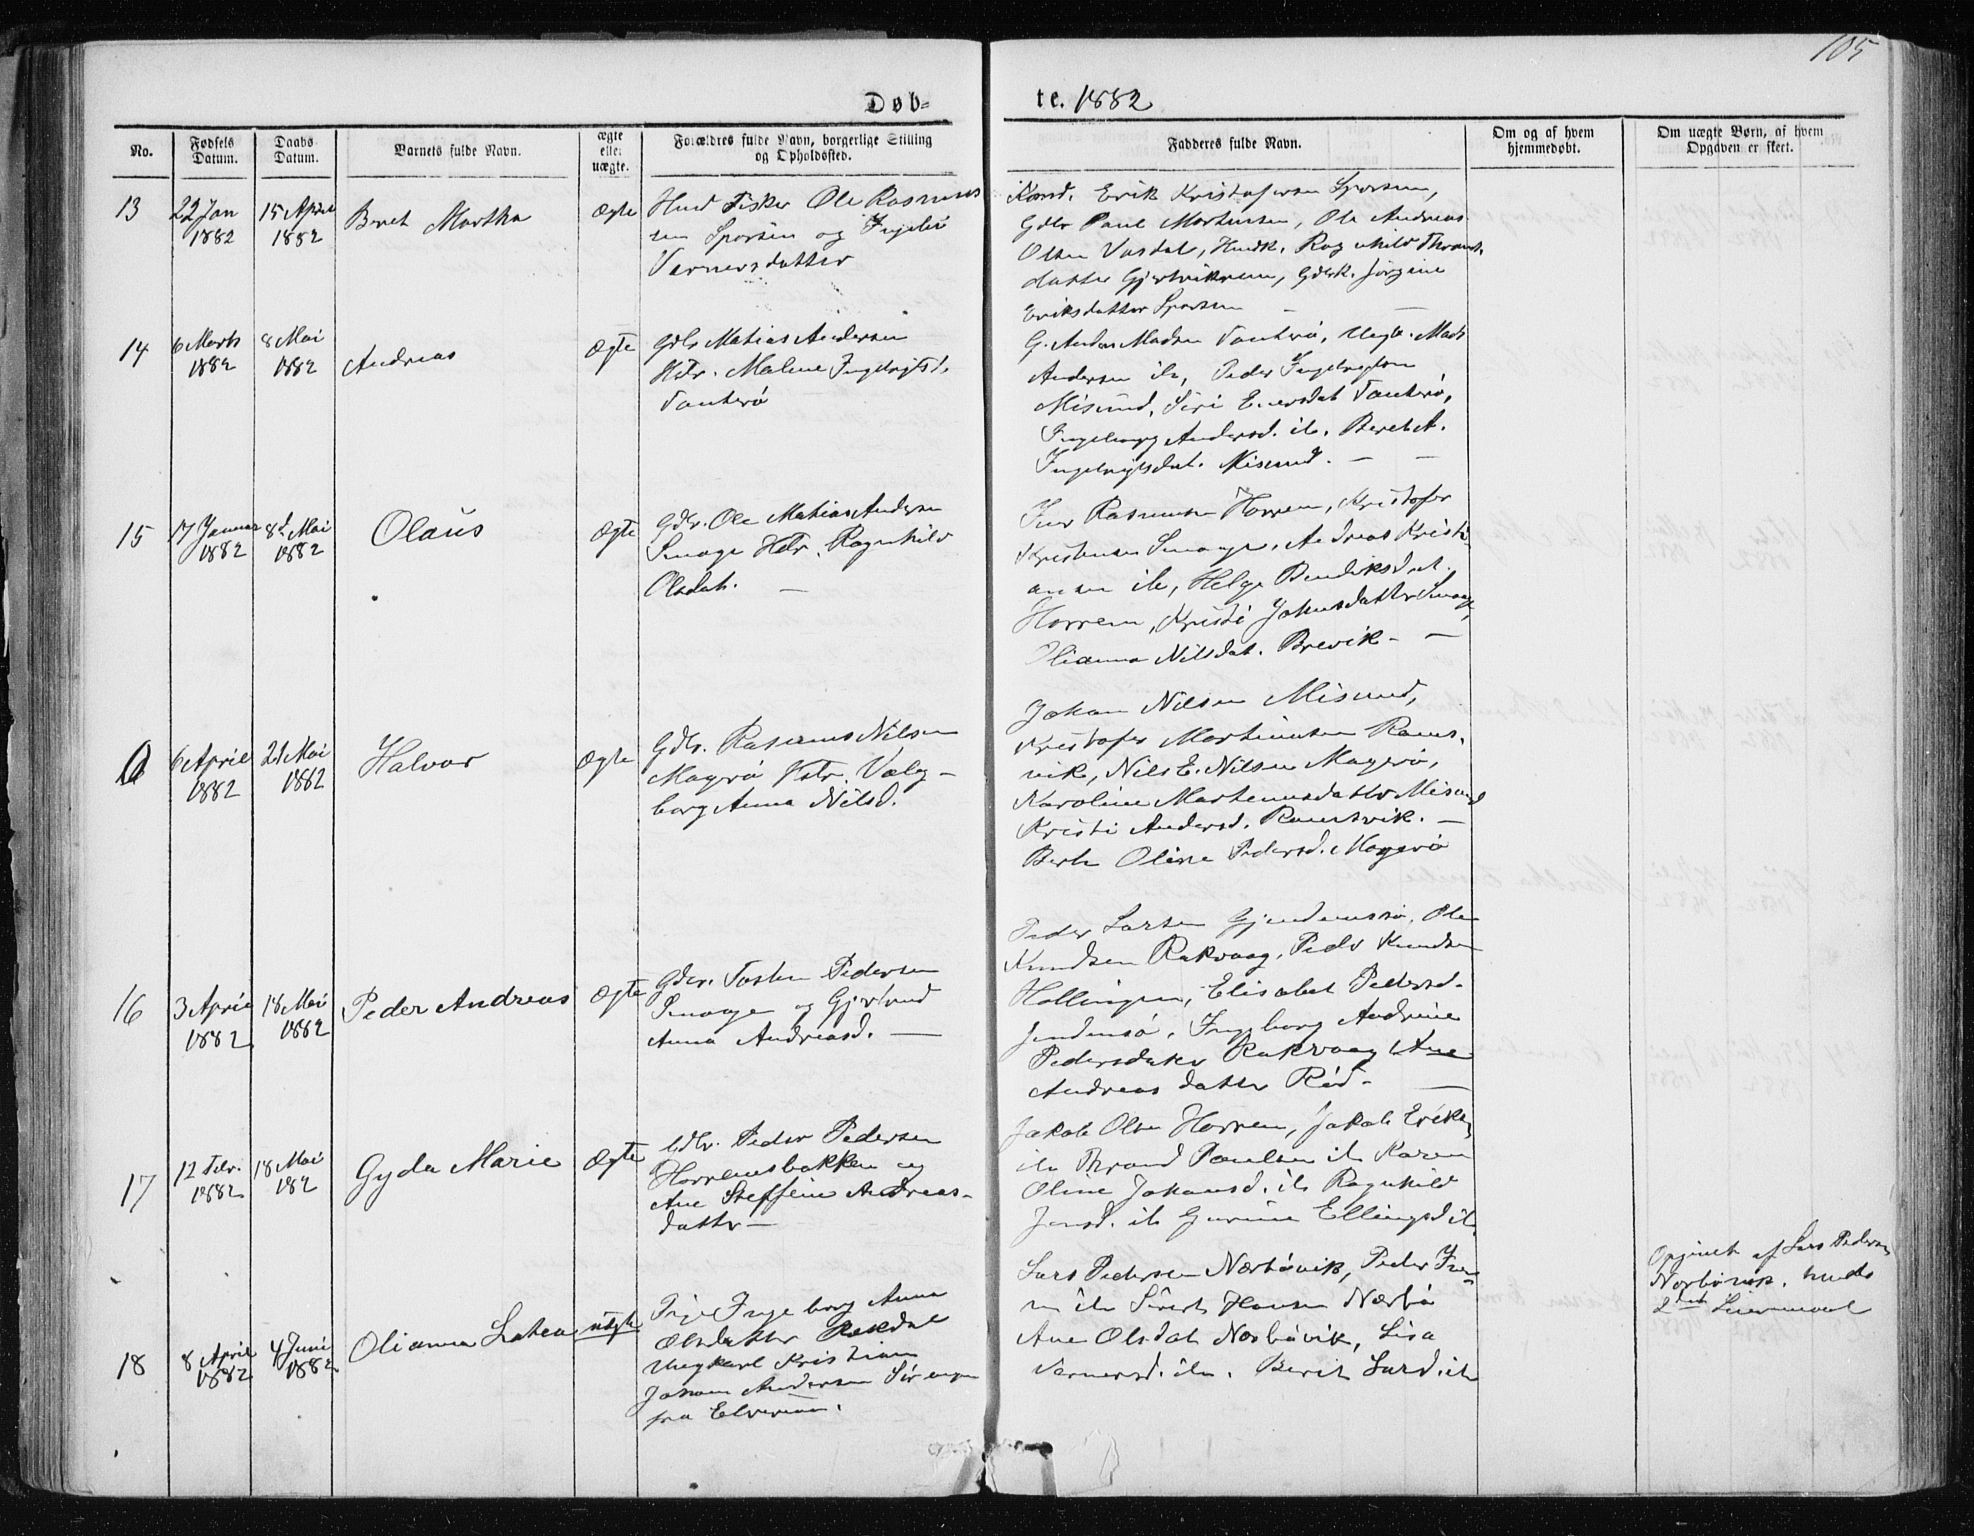 105
Døb-
te. 1882
No.
Fødsels
Datum.
Daabs
Datum.
Barnets fulde Navn.
ægte
eller
uægte.
Forældres fulde Navn, borgerlige Stilling
og Opholdssted.
Fadderes fulde Navn.
Om og af hvem
hjemmedøbt.
Om uægte Børn, af hvem
Opgaven er skeet.
13
22 Jan
1882
15 April
1882
Beret Martha
Ægte
Husm Fisker Ole Rasmus
sen Sporsem og
Vernersdatter
Erik Kristofersen Sporsem,
Gdbr Paul Mortensen, Ole Andreas
Olsen Vasdal, Ragnhild
datter Gjertvikrem, Jørgine
Eriksdatter Sporsem
14
6 Marts
1882
8 Mai
1882
Andreas
Ægte
Gdbr Matias Andersen
Hstr. Malene Ingebrigtsd.
G. Anders Madsen Mads
Andersen ib, Peder Ingebrigtsen
Misund, Siri
Ingeborg Andersd. ib. Beret A.
Ingebrigtsdat. Misund. — —
15
17 Januar
1882
8d Mai
1882
Olaus
Ægte
Gdbr. Ole Matias Andersen
Smage Hstr. Ragnhild
Olsdat. —
Iver Rasmusen Horrem, Kristofer
Kristensen Smage, Andreas Kristi
ansen ib, Helge Bendiksdat.
Horrem, Kristi Johansdatter Smage,
Olianna Nilsdat. Brevik — —
6 April
1882
21 Mai
1882
Halvor
Ægte
Gdbr. Rasmus Nilsen
Magerø Hstr. Valg-
borg Anna Nilsd.
Johan Nilsen Misund,
Kristofer Martinusen Rams-
vik, Nils E. Nilsen Magerø,
Karoline Martinusdatter Misund
Kristi Andersd. Ramsvik. —
Berte Oline Pedersd. Magerø
16
3 April
1882
18 Mai
1882
Peder Andreas
Ægte
Gdbr. Tosten Pedersen
Smage og Gjertrud
Anna Andreasd. —
Peder Larsen Gjendemsø, Ole
Knudsen Rakvaag, Peder Knudsen
Hollingen, Elisabet Pedersd.
Jendemsø, Ingeborg Andrine
Pedersdatter Rakvaag Ane
Andreas datter Rød — —
17
12 Febr.
1882
18 Mai
182
Gyda Marie
Ægte
Gdbr. Peder Pedersen
Horremsbakken og
Ane Steffine Andreas-
datter —
Jakob Olsen Horrem, Jakob Eriksen
ib Thrond Paulsen ib Karen
Oline Johansd. ib Ragnhild
Jensd. ib Gurine Ellingsd ib
18
8 April
1882
4 Juni
1882
Olianna
uægte
Pige Ingeborg Anna
Olsdatter
Ungkarl Kristian
Johan Andersen
fra
Lars Pedersen Nærbøvik, Peder
ib Sivert Hansen Nærbø
Ane Olsdat Nærbøvik, Lisa
Vernersd. ib. Berit Larsd ib
Opgivet af Lars Pedersen
Nærbøvik.
2det Leiermaal